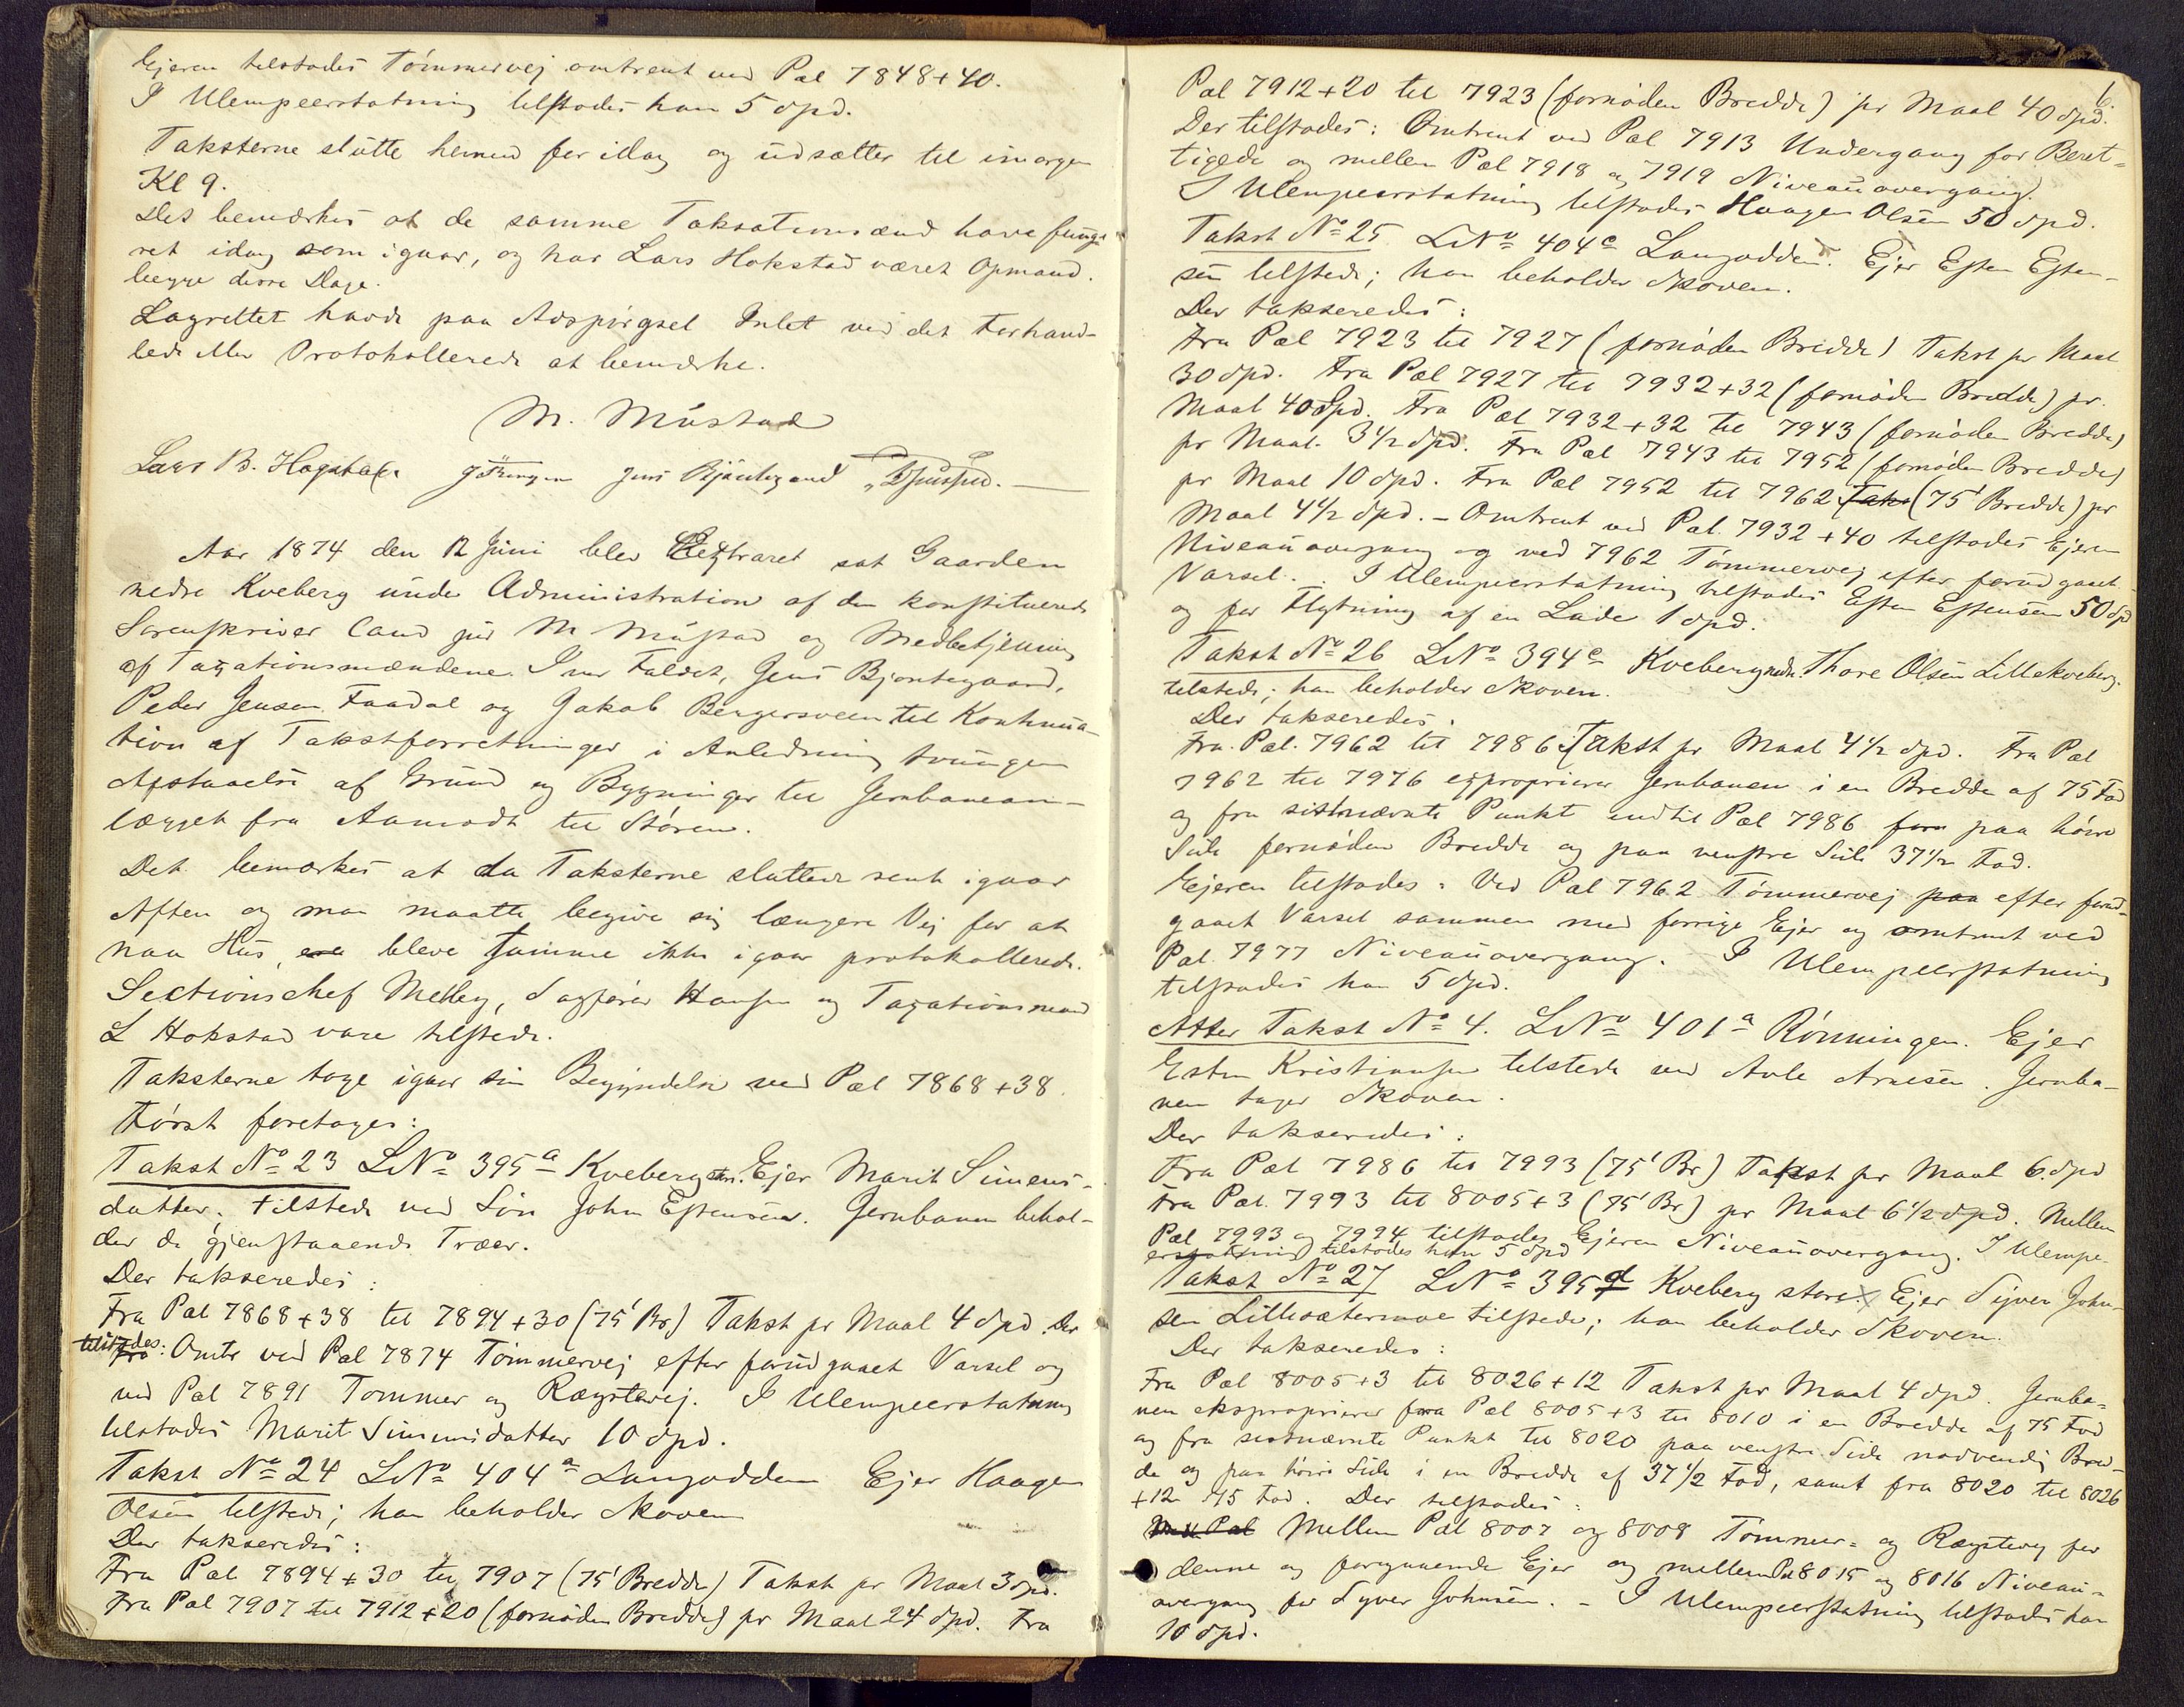 Ejeren tilstodes Tømmervej omtrent ved Pæl 7848+40.
I Ulempeerstatning tilstodes han 5 Spd.
Taksterne slutte hermed for idag og udsætter til imorgen
Kl 9.
Det bemærkes at de samme Taksationsmænd have funge-
ret idag som igaar, og har Lars Hokstad været Opmand
begge disse Dage.
Lagrettet havde paa Adspørgsel Intet ved det Forhand-
lede eller Protokollerede at bemærke.
M. Mustad
Lars B. Hagstad Jens Bjøntegaard
Aar 1874 den 12 Juni blev Extraret sat Gaarden
nedre Kveberg under Administration af den konstituerede
Sorenskriver Cand jur M Mustad og Medbetjening
af Taxationsmændene Iver Faldet, Jens Bjøntegaard,
Peder Jensen Faadal og Jakob Bergersveen til Kontinua-
tion af Takstforretninger i Anledning tvungen
Afstaaelse af Grund og Bygninger til Jernbanean-
lægget fra Aamodt til Støren.
Det bemærkes at da Taksterne sluttede sent igaar
Aften og man maatte begive sig længere Vej for at
naa Hus, bleve samme ikke igaar protokollerede.
Sectionschef Melbey, Sagfører Hansen og Taxationsmand
L Hokstad vare tilstede.
Taksterne toge igaar sin Begyndelse ved Pæl 7868+38.
Først foretoges:
Takst No 23 LNo 395a Kveberg str. Ejer Marit Simens-
datter, tilstede ved Søn John Estensen. Jernbanen behol-
der de gjenstaaende Træer.
Der takseredes:
Fra Pæl 7868+38 til 7894+30 (75' Br.) Takst pr Maal 4 Spd. Der
tilstodes: Omtr ved Pæl 7874 Tømmervej efter forudgaaet Varsel og
ved Pæl 7891 Tømmer og Rægstevej. I Ulempeerstatning
tilstodes Marit Simensdatter 10 Spd.
Takst No 24 LNo 404a Langodden Ejer Haagen
Olsen tilstede; han beholder Skoven
Der takseredes:
Fra Pæl 7894+30 til 7907 (75' Bredde) Takst pr Maal 3 Spd.
Fra Pæl 7907 til 7912+20 (fornøden Bredde) pr Maal 24 Spd. Fra
6.
Pæl 7912+20 til 7923 (fornøden Bredde) pr Maal 40 Spd.
Der tilstodes: Omtrent ved Pæl 7913 Undergang for Beret-
tigede og mellem Pæl 7918 og 7919 Niveauovergang.
I Ulempeerstatning tilstodes Haagen Olsen 50 Spd.
Takst No 25 LNo 404c Langodden. Ejer Esten Esten-
sen tilstede; han beholder Skoven.
Der takseredes:
Fra Pæl 7923 til 7927 (fornøden Bredde) Takst pr Maal
30 Spd. Fra Pæl 7927 til 7932+32 (fornøden Bredde) pr.
Maal 40 Spd. Fra Pæl 7932+32 til 7943 (fornøden Bredde)
pr Maal 3 1/2 Spd. Fra Pæl 7943 til 7952 (fornøden Bredde)
pr Maal 10 Spd. Fra Pæl 7952 til 7962 Takst (75' Bredde) pr
Maal 4 1/2 Spd. - Omtrent ved Pæl 7932+40 tilstodes Ejeren
Niveauovergang og ved 7962 Tømmervej efter forudgaaet
Varsel. I Ulempeerstatning tilstodes Esten Estensen 50 Spd
og for Flytning af en Lade 1 Spd.
Takst No 26 LNo 394c Kveberg nedr. Thore Olsen Lillekveberg
tilstede; han beholder Skoven.
Der takseredes.
Fra Pæl. 7962 til 7986 Takst pr Maal 4 1/2 Spd. Fra Pæl
7962 til 7976 exproprierer Jernbanen i en Bredde af 75 Fod
og fra sistnævnte Punkt indtil Pæl 7986 forn paa høire
Side fornøden Bredde og paa venstre Side 37 1/2 Fod.
Ejeren tilstodes: Ved Pæl 7962 Tømmervej paa efter forud-
gaaet Varsel sammen med forrige Ejer og omtrent ved
Pæl. 7977 Niveauovergang. I Ulempeerstatning
tilstodes han 5 Spd.
Atter Takst No 4. LNo 401a Rønningen. Ejer
Esten Kristiansen tilstede ved Arnesen. Jernba-
nen tager Skoven.
Der takseredes:
Fra Pæl 7986 til 7993 (75' Br) Takst pr Maal 6 Spd
Fra Pæl. 7993 til 8005+3 (75' Br) pr Maal 6 1/2 Spd. Mellem
Pæl 7993 og 7994 tilstodes Ejeren Niveauovergang. I Ulempe-
erstatning tilstodes han 5 Spd
Takst No 27 LNo 395d Kveberg store. Ejer Syver John-
sen Lillesætermoe tilstede; han beholder Skoven.
Der takseredes:
Fra Pæl 8005+3 til 8026+12 Takst pr Maal 4 Spd. Jernba-
nen eksproprierer fra Pæl 8005+3 til 8010 i en Bredde af 75 Fod
og fra sistnævnte Punkt til 8020 paa venstre Side nødvendig Bred-
de og paa høire Side i en Bredde af 37 1/2 Fod, samt fra 8020 til 8026
+12 75 Fod. Der tilstodes:
Ved Pæl Mellem Pæl 8007 og 8008 Tømmer- og Rægstevej for
denne og foregaaende Ejer og mellem Pæl 8015 og 8016 Niveau-
overgang for Syver Johnsen. - I Ulempeerstatning tilstodes han
10 Spd.